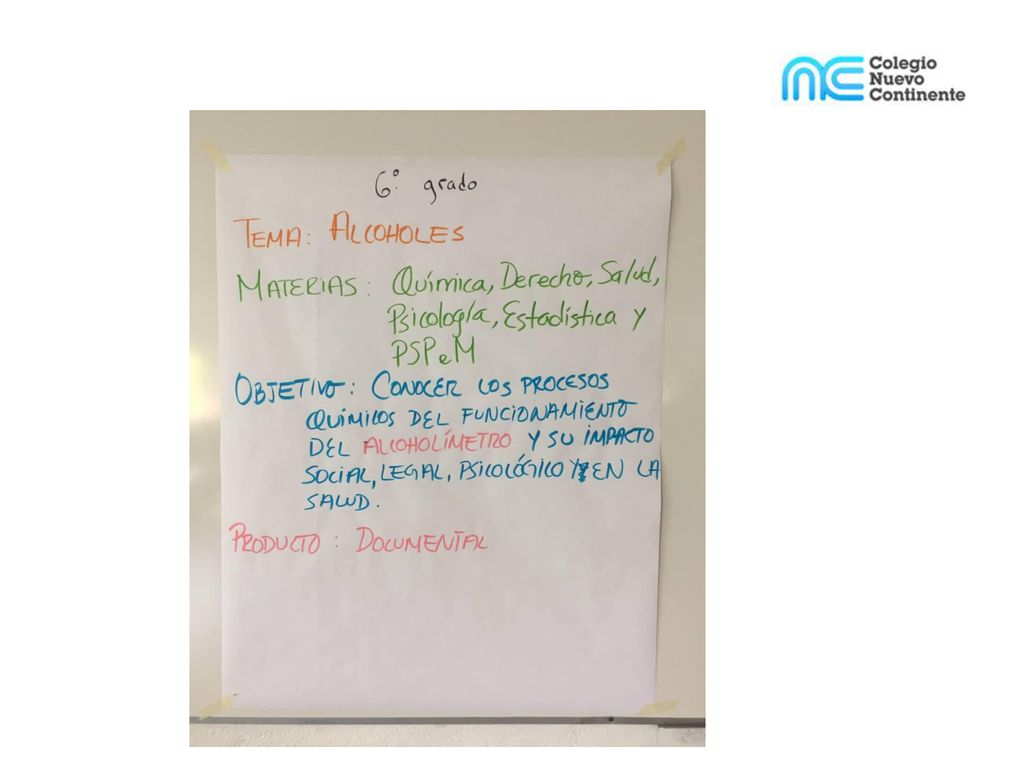 Colegio
Nuevo
Continente
6° grado
TEMA: ALCOHOLES
MATERIAS: Química, Derecho, Salud,
Psicología, Estadística y
PSPeM
OBJETIVO: CONOCER LOS PROCESOS
QUÍMICOS DEL FUNCIONAMIENTO
DEL ALCOHOLÍMETRO Y SU IMPACTO
SOCIAL, LEGAL, PSICOLÓGICO Y EN LA
SALUD.
PRODUCTO: DOCUMENTAL